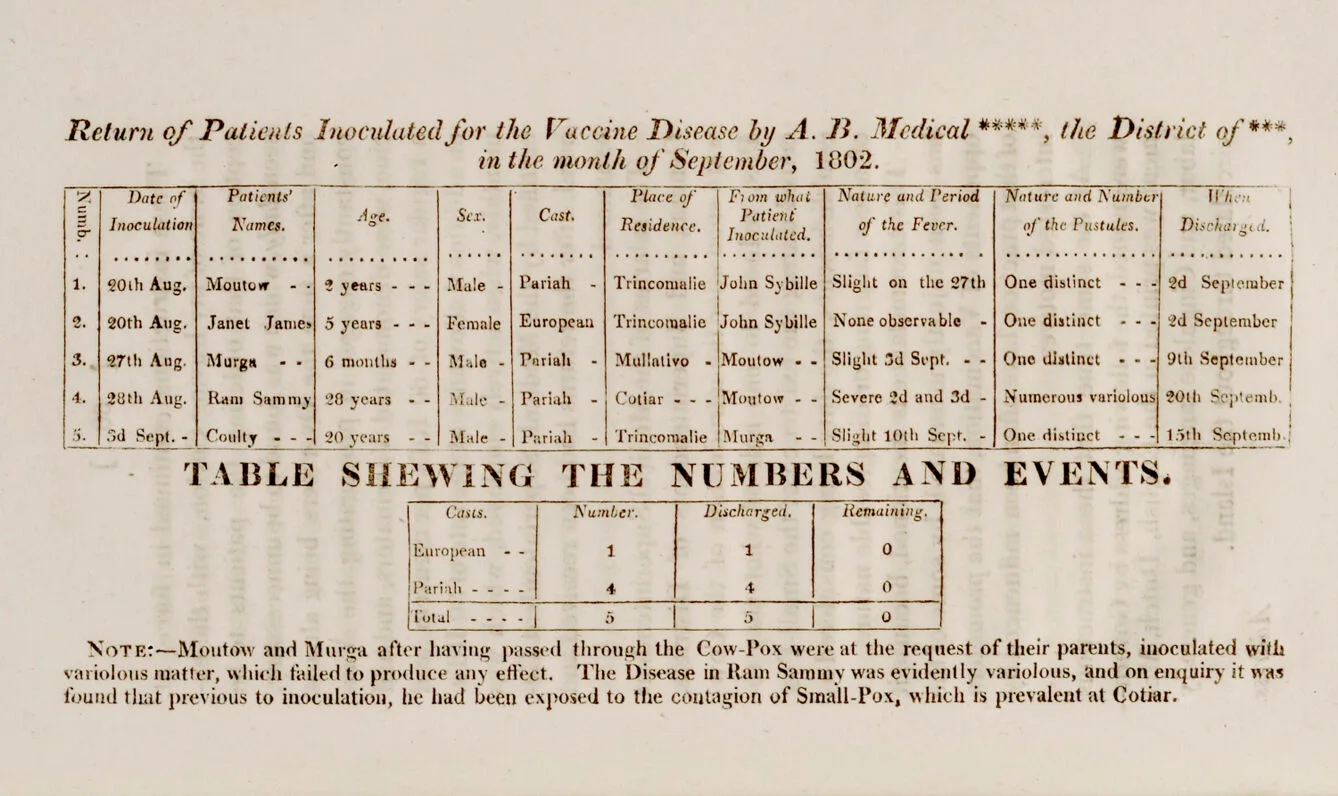 Return of Patients Inoculated for the Vaccine Disease by A. B. Medical *****, the District of ***,
in the month of September, 1802.
Numb. Date of Inoculation Patients' Names. Age. Sex. Cast. Place of Residence. From what Patient Inoculated. Nature and Period of the Fever. Nature and Number of the Pustules. When Discharged.
1. 20th Aug. Moutow - - 2 years - - - Male - Pariah - Trincomalie John Sybille Slight on the 27th One distinct - - - 2d September
2. 20th Aug. Janet James 5 years - - - Female European Trincomalie John Sybille None observable - One distinct - - - 2d September
3. 27th Aug. Murga - - 6 months - - Male - Pariah - Mullativo - Moutow - - Slight 3d Sept. - - One distinct - - - 9th September
4. 28th Aug. Ram Sammy 28 years - - Male - Pariah - Cotiar - - - Moutow - - Severe 2d and 3d - Numerous variolous 20th Septemb.
5. 3d Sept. - Coulty - - - 20 years - - Male - Pariah - Trincomalie Murga - - Slight 10th Sept. - One distinct - - - 15th Septemb.
TABLE SHEWING THE NUMBERS AND EVENTS.
Casts. Number. Discharged. Remaining.
European - - 1 1 0
Pariah - - - - 4 4 0
Total - - - - 5 5 0
NOTE:—Moutow and Murga after having passed through the Cow-Pox were at the request of their parents, inoculated with
variolous matter, which failed to produce any effect. The Disease in Ram Sammy was evidently variolous, and on enquiry it was
found that previous to inoculation, he had been exposed to the contagion of Small-Pox, which is prevalent at Cotiar.